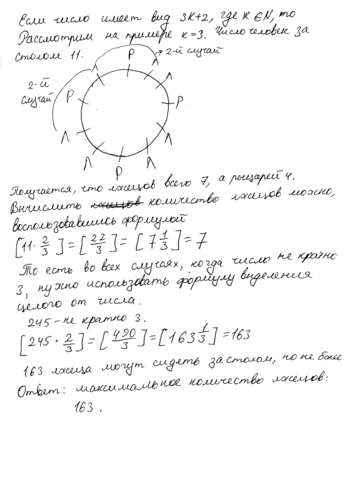 Если число имеет вид 3К+2, где К ∈ N, то
Рассмотрим на примере к=3. Число человек за
столом 11.
2-й случай
2-й
случай
Л Р Л
Р Р
Л Л
Л Л
Р
Л
Получается, что лжецов всего 7, а рыцарей 4.
Вычислить количество лжецов можно,
воспользовавшись формулой
[11·2/3]=[22/3]=[7 1/3]=7
То есть во всех случаях, когда число не кратно
3, нужно использовать формулу выделения
целого от числа.
245 - не кратно 3.
[245·2/3]=[490/3]=[163 1/3]=163
163 лжеца могут сидеть за столом, но не более
Ответ: максимальное количество лжецов:
163.